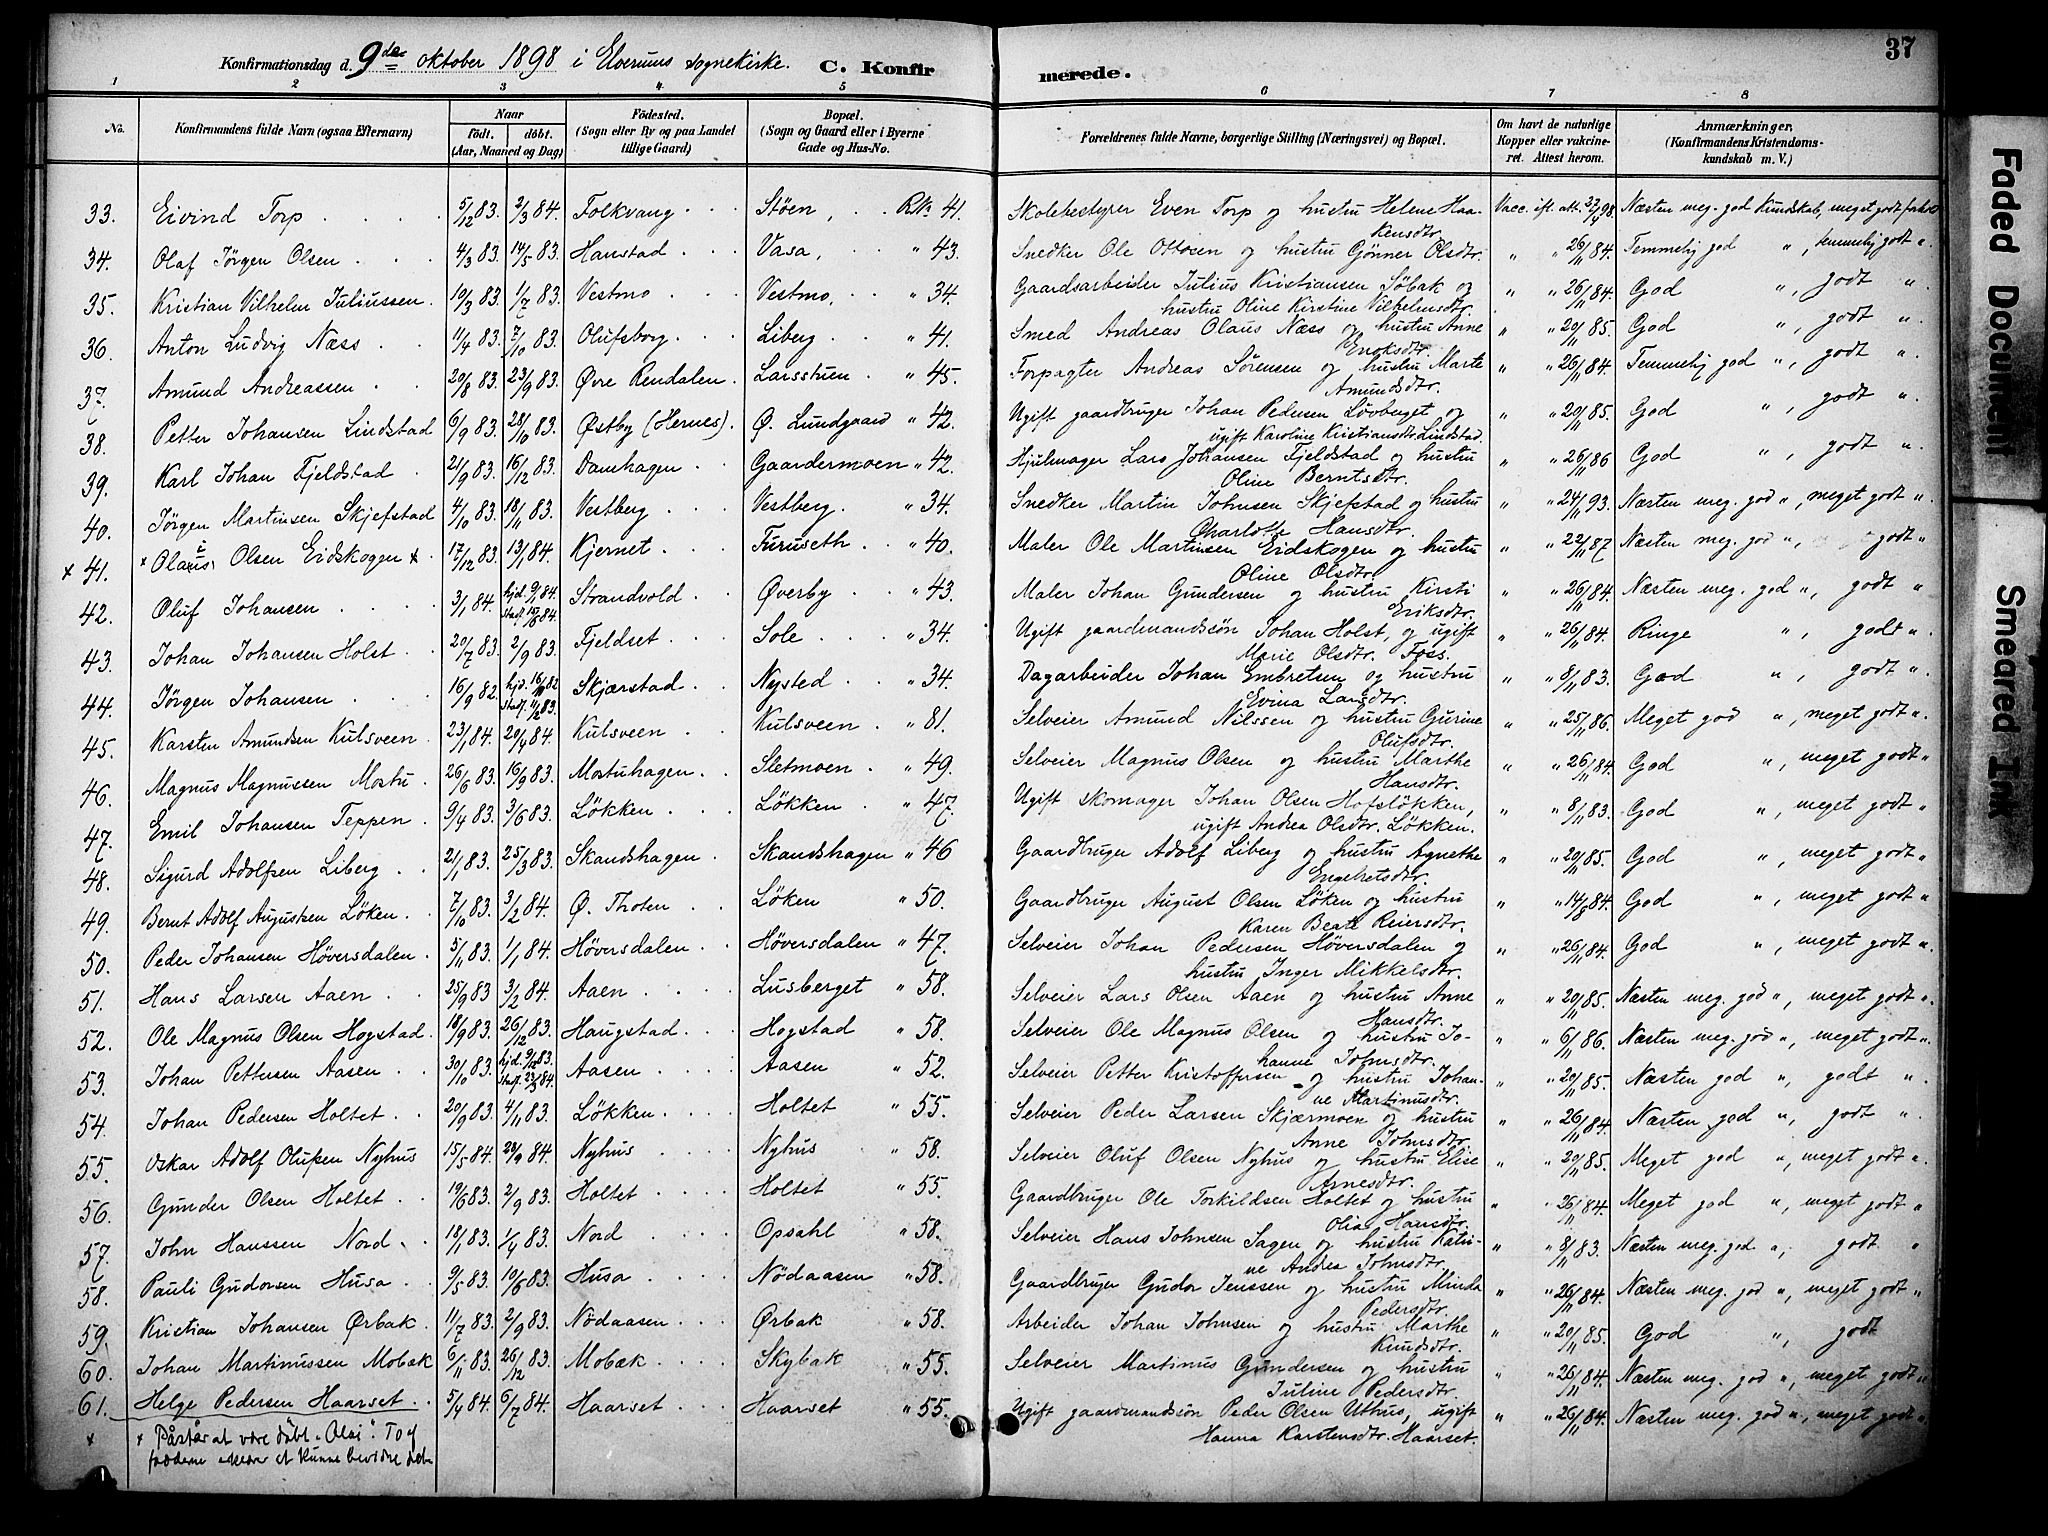 37
Konfirmationsdag d. 9de oktober 1898 i Elverums sognekirke. C. Konfirmerede.
1 2 3 4 5 6 7 8
No. Konfirmandens fulde Navn (ogsaa Efternavn) Naar födt. döbt. (Aar, Maaned og Dag) Födested. (Sogn eller By og paa Landet tillige Gaard) Bopæl. (Sogn og Gaard eller i Byerne Gade og Hus-No. Forældrenes fulde Navne, borgerlige Stilling (Næringsvei) og Bopæl. Om havt de naturlige Kopper eller vakcineret. Attest herom. Anmærkninger. (Konfirmandens Kristendomskundskab m. V.)
33. Eivind Torp 5/12 83. 2/3 84. Folkvang Støen, Rk. 41. Skolebestyrer Even Torp og hustru Helene Haakensdtr. Vacc. ifl. att. Næsten meg. god Kundskab, meget godt forhold
34. Olaf Jörgen Olsen 4/3 83. 14/5 83. Hanstad Vasa, " 43. Snedker Ole Ottosen og hustru Gjönner Olsdtr. " " 26/11 84. Temmelig god ", temmelig godt "
35. Kristian Vilhelm Juliussen 10/3 83. 1/7 83. Vestmo Vestmo, " 34. Gaardsarbeider Julius Kristiansen Söbak og hustru Oline Kirstine Vilhelmsdtr. " " 26/11 84. God ", godt "
36. Anton Ludvig Næss 11/4 83. 7/10 83. Olufsborg Liberg " 41. Smed Andreas Olaus Næss og hustru Anne Eriksdtr. " " 20/11 85. God ", godt "
37. Amund Andreassen 20/8 83. 23/9 83. Øvre Rendalen Larsstuen " 45. Forpagter Andreas Sörensen og hustru Marte Amundsdtr. " " 26/11 84. Temmelig god ", godt "
38. Petter Johansen Lindstad 6/9 83. 28/10 83. Østby (Hernes). Ø. Lundgaard " 42. Ugift gaardbruger Johan Pedersen Lövberget og ugift Karoline Kristiansdtr Lindstad. " " 20/11 85. God ", godt "
39. Karl Johan Fjeldstad 21/9 83. 16/12 83. Damhagen Gaardermoen " 42. Hjulmager Lars Johansen Fjeldstad og hustru Oline Berntsdtr. " " 26/11 86 God ", godt "
40. Jörgen Martinsen Skjefstad 4/10 83. 18/11 83. Vestberg Vestberg. " 34. Snedker Martin Johnsen Skjefstad og hustru Charlotte Hansdtr. " " 24/11 93. Næsten meg. god ", meget godt "
x 41. x Olaus Olsen Eidskogen x 17/12 83. 13/1 84. Kjernet Furuseth " 40. Maler Ole Martinsen Eidskogen og hustru Oline Olsdtr. " " 22/11 87 Næsten meg. god ", godt "
42. Oluf Johansen 3/1 84. hjd. 9/1 84. stadf. 84. Strandvold Øverby " 43. Maler Johan Gundersen og hustru Kirsti Eriksdtr. " " 26/11 84. Næsten meg. god ", godt "
43. Johan Johansen Holst 20/7 83. 2/9 83. Fjeldset Sole " 34. Ugift gaardmandssön Johan Holst, og ugift Marie Olsdtr. Foss. " " 26/11 84. Ringe ", godt "
44. Jörgen Johansen 16/9 82. hjd. 82 stadf. 11/2 83. Skjærstad Nysted " 34. Dagarbeider Johan Embretsen og hustru Evina Larsdtr. " " 8/11 83. God ", godt "
45. Karsten Amundsen Kulsveen 23/1 84. 20/4 84. Kulsveen Kulsveen " 81. Selveier Amund Nilssen og hustru Gurine Olufsdtr. " " 25/11 86. Meget god ", meget godt "
46. Magnus Magnussen Mostu 26/6 83. 16/9 83. Mostuhagen Sletmoen " 49. Selveier Magnus Olsen og hustru Marthe Hansdtr. " " 26/11 84. God ", meget godt "
47. Emil Johansen Teppen 9/4 83. 3/6 83. Lökken Lökken " 47. Ugift skomager Johan Olsen Hofslökken, ugift Andrea Olsdtr. Lökken. " " 8/11 83. God ", meget godt "
48. Sigurd Adolfsen Liberg 21/1 83. 25/3 83. Skandshagen Skandshagen " 46 Gaardbruger Adolf Liberg og hustru Agnethe Engebretsdtr. " " 20/11 85. God ", meget godt "
49. Bernt Adolf Augustsen Löken 7/10 83. 3/2 84. Ø. Thoten Löken " 50. Gaardbruger August Olsen Löken og hustru Karen Beate Reiersdtr. " " 14/8 84. God ", meget godt "
50. Peder Johansen Höversdalen 5/11 83. 1/1 84. Höversdalen Höversdalen " 47. Selveier Johan Pedersen Höversdalen og hustru Inger Mikkelsdtr. " " 26/11 84. God ", meget godt "
51. Hans Larsen Aaen 25/9 83 3/2 84. Aaen Lusberget " 58. Selveier Lars Olsen Aaen og hustru Anne Hansdtr. " " 20/11 85. Næsten meg. god ", meget godt "
52. Ole Magnus Olsen Hogstad 18/9 83. 26/12 83. Haugstad Hogstad " 58. Selveier Ole Magnus Olsen og hustru Johanne Johnsdtr. " " 6/11 86. Næsten meg. god ", meget godt "
53. Johan Pettersen Aasen 30/10 83. hjd. 9/12 83. stadf. 23/3 84. Aasen Aasen " 52. Selveier Petter Kristoffersen og hustru Johanne Martinusdtr. " " 20/11 85. Næsten god ", godt "
54. Johan Pedersen Holtet 20/9 83. 4/11 83. Lökken Holtet " 55. Selveier Peder Larsen Skjærmoen og hustru Anne Johnsdtr. " " 26/11 84. Næsten god ", godt "
55. Oskar Adolf Olufsen Nyhus 15/5 84. 84. Nyhus Nyhus " 58. Selveier Oluf Olsen Nyhus og hustru Elise Arnesdtr. " " 20/11 85. Meget god ", meget godt "
56. Gunder Olsen Holtet 19/6 83. 2/9 83. Holtet Holtet " 55. Gaardbruger Ole Torkildsen Holtet og hustru Olia Hansdtr. " " 26/11 84. Meget god ", meget godt "
57. John Hanssen Nord 18/1 83. 1/4 83. Nord Opsahl " 58. Selveier Hans Johnsen Sagen og hustru Katrine Andrea Johnsdtr. " " 8/11 83. Næsten meg. god ", godt "
58. Pauli Gudorsen Husa 9/5 83. 10/6 83. Husa Nödaasen " 58. Gaardbruger Gudor Jenssen og hustru Minda Pedersdtr. " " 26/11 84. Næsten meg. god ", meget godt "
59. Kristian Johansen Ørbak 11/7 83. 2/9 83. Nödaasen Ørbak " 58. Arbeider Johan Johnsen og hustru Marthe Knudsdtr. " " 20/11 85. God ", godt
60. Johan Martinussen Mobæk 6/11 83. 26/12 83. Mobæk Skybak " 55. Selveier Martinus Gundersen og hustru Juline Pedersdtr. " " 26/11 84. Næsten meg. god ", meget godt "
61. Helge Pedersen Haarset 5/4 84. 6/7 84. Haarset Haarset " 55. Ugift gaardmandssön Peder Olsen Uthus, ugift Hanna Karstensdtr. Haarset. " " 26/11 84. Næsten meg. god ", meget godt "
x x Påstår at være døbt "Olai".
kunne bevidne det
Faded Document
Smeared Ink